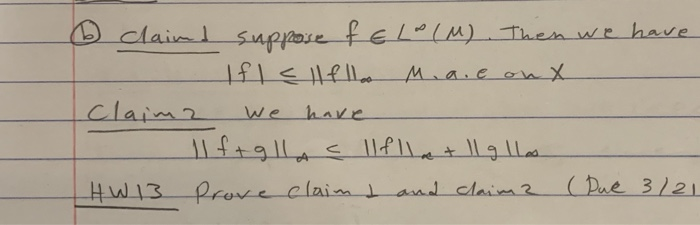 (b) Claim 1 suppose f ∈ L^∞(μ). Then we have
|f| ≤ ||f||_∞ μ.a.e on X
Claim 2 we have
||f+g||_∞ ≤ ||f||_∞ + ||g||_∞
HW13 Prove claim 1 and claim 2 (Due 3/21